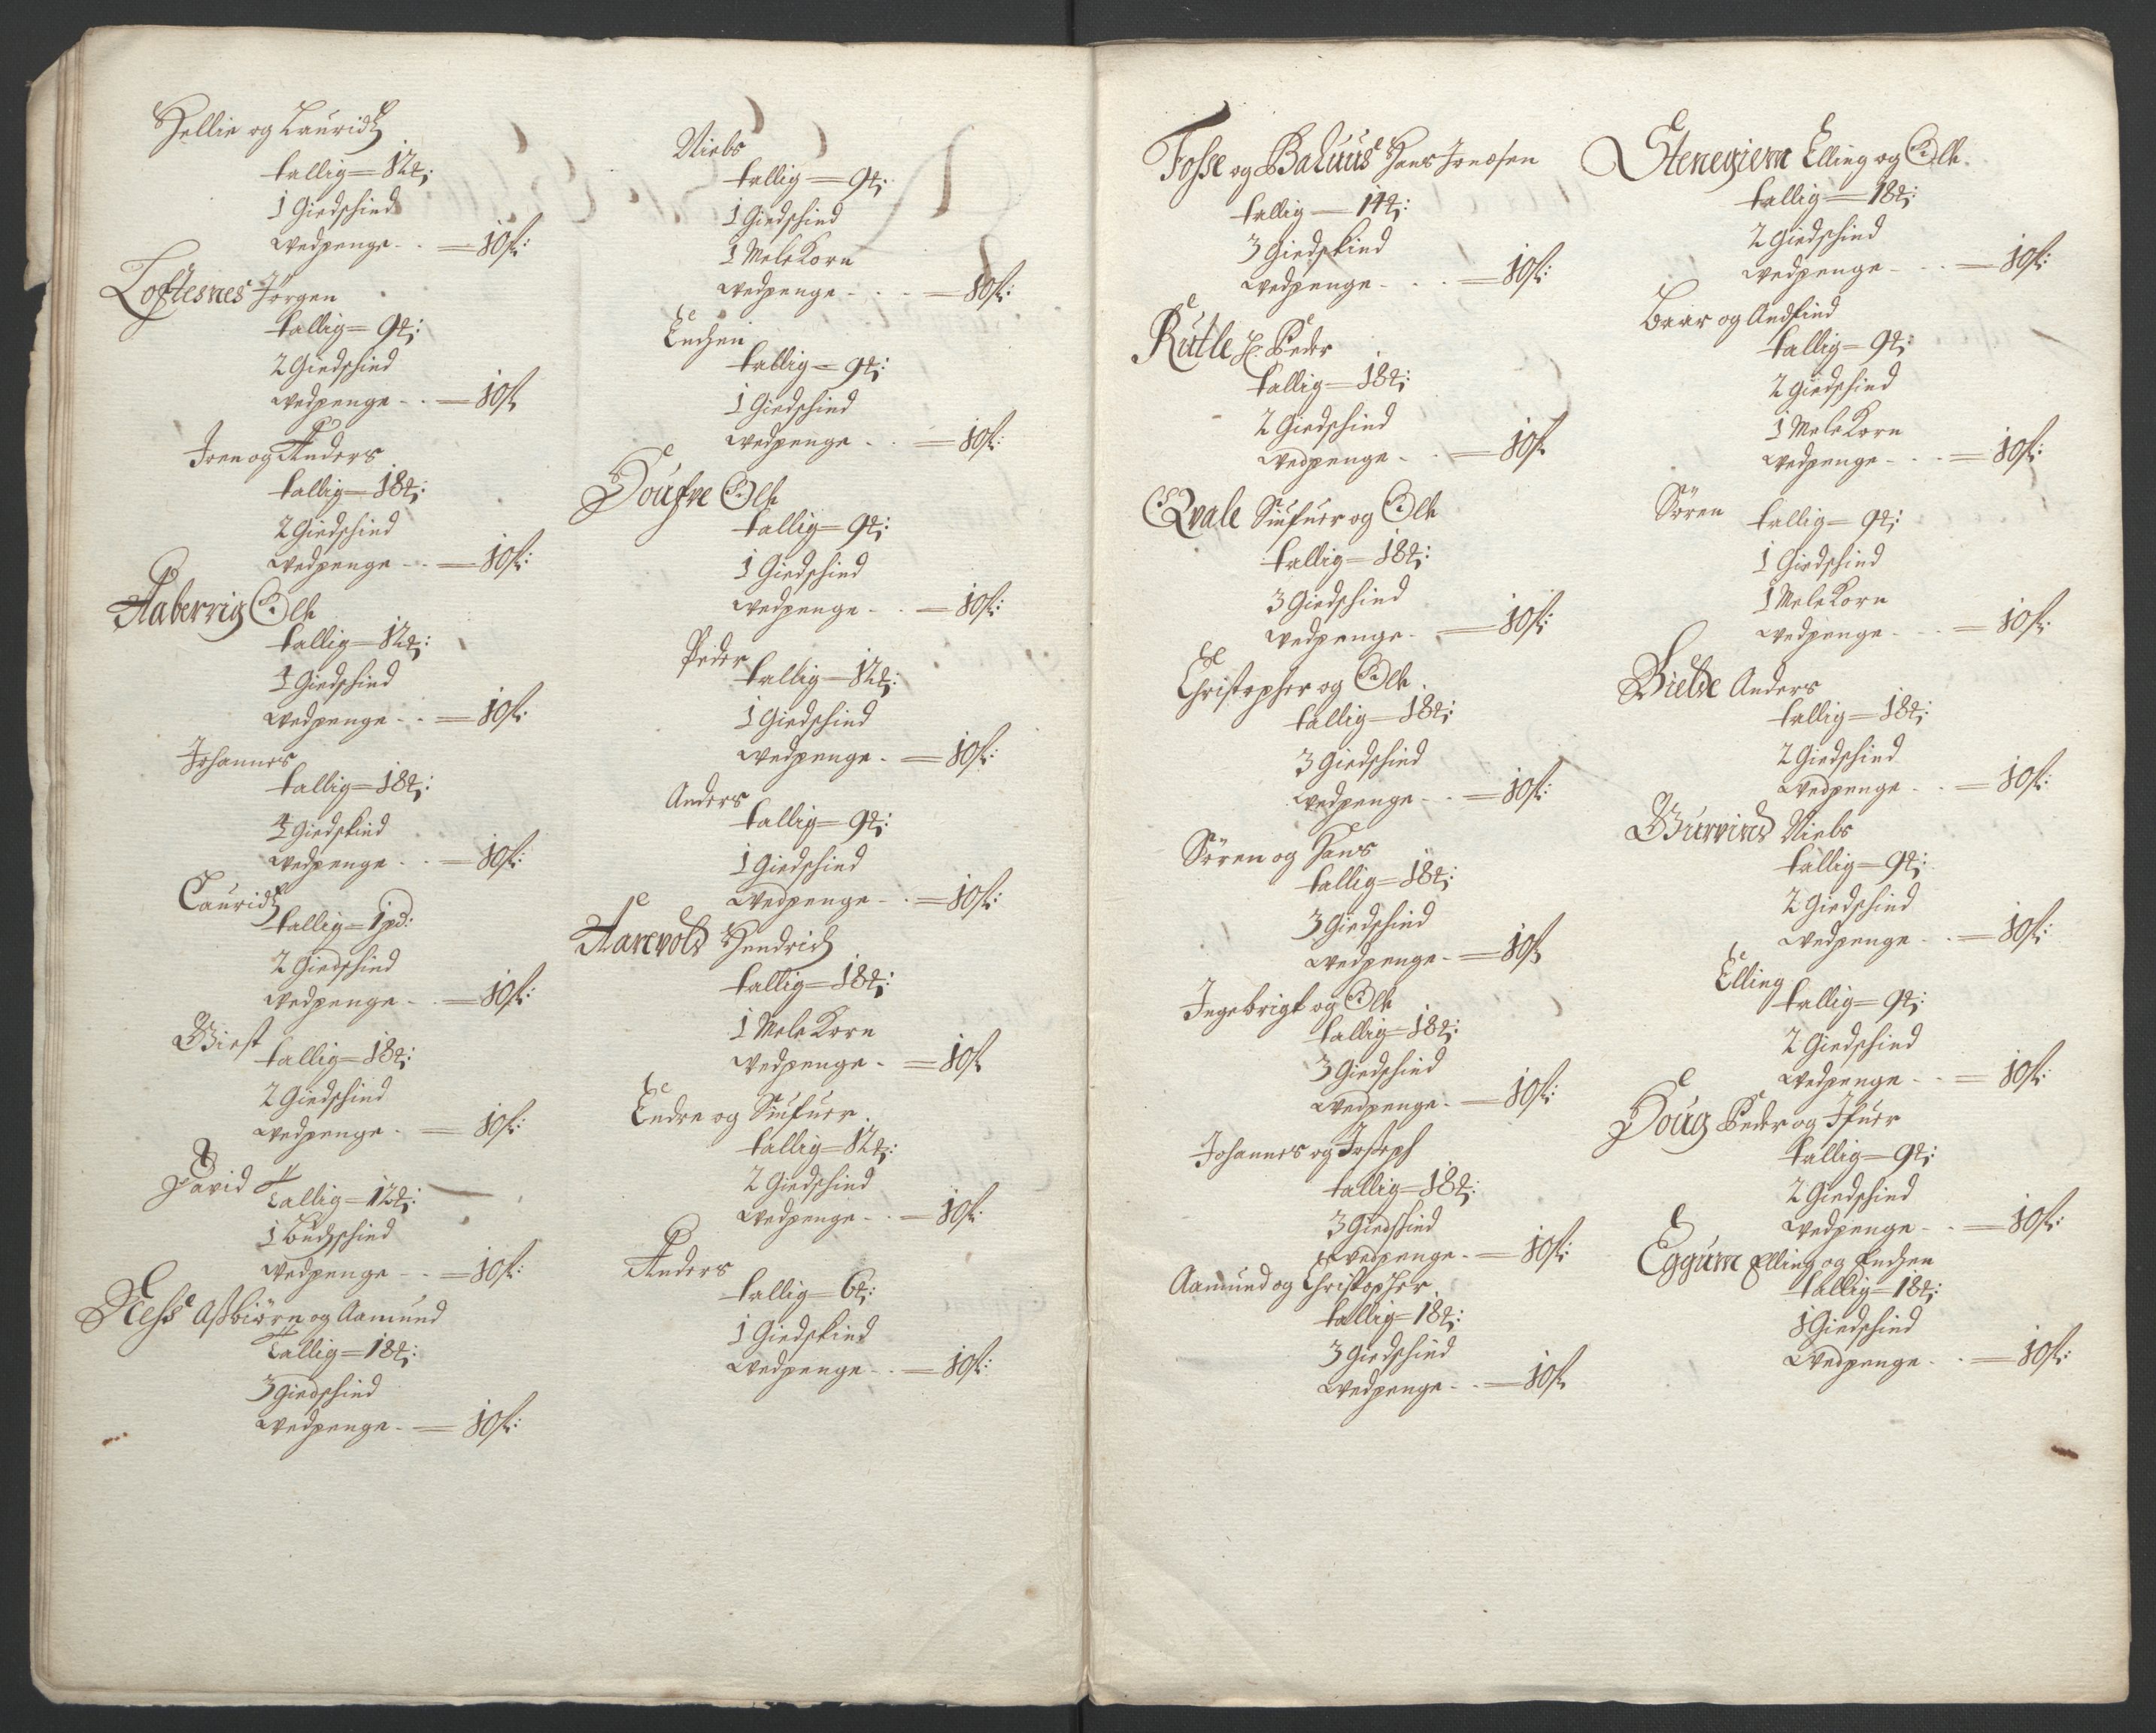 Hellie og Lauridtz
tallig = 12 ℔:
1 Giedschind
wedpenge - . = 10ſ:
Loftesnes Jørgen
tallig = 9 ℔:
2 Giedschind
wedpenge - . = 10ſ
Joen og Anders
tallig = 18 ℔:
2 Giedschind
wedpenge - - = 10ſ:
Aaberrig Ole
tallig = 12 ℔:
1 Giedschind
wedpenge - - = 10ſ:
Johannes
tallig = 18 ℔:
Giedskind
wedpenge - - = 10ſ:
Lauridtz
tallig = 1 pd:
2 Giedschind
wedpenge - . = 10ſ:
Giest
tallig = 18 ℔:
2 Giedschind
wedpenge - = 10ſ:
David
Tallig = 12 ℔:
1 Buchschind
wedpenge - - = 10ſ:
Nesse Asbiørn og Aamund
Tallig = 18 ℔:
3 Giedschind
wedpenge - = 10ſ:
Niels
tallig = 9 ℔:
1 Giedschind
1 Mele Korn
wedpenge - . - = 10ſ:
Endzen
tallig = 9 ℔:
1 Giedschind
wedpenge - . = 10ſ:
Ole
tallig = 9 ℔:
1 Giedschind
wedpenge - . = 10ſ:
Peder
tallig = 12 ℔:
1 Giedschind
wedpenge - = 10ſ:
Anders
tallig = 9 ℔:
1 Giedschind
wedpenge - . = 10ſ:
Aarevold Hendrich
tallig = 18 ℔:
1 Mele Korn
wedpenge - = 10ſ
Endre og Siufuer
tallig = 12 ℔:
2 Giedschind
wedpenge - . = 10ſ:
Anders
tallig = 6 ℔:
1 Giedskind
wedpenge - . = 10ſ:
Fosse og Baluus Hans Jonesen
tallig = 14 ℔:
3 Giedskind
wedpenge - . = 10ſ:
Rutle Peder
tallig = 18 ℔:
2 Giedschind
wedpenge - . = 10ſ
Qvale Siufuer og Ole
tallig = 18 ℔:
3 Giedschind
wedpenge - = 10ſ:
Christopher og Ole
tallig = 18 ℔:
3 Giedschind
wedpenge - . = 10ſ:
Søren og Hans
tallig = 18 ℔:
3 Giedschind
wedpenge - = 10ſ
Ingebrigt og Ole
tallig = 18 ℔:
3 Giedschind
wedpenge - = 10ſ:
Johannes og Joseph
tallig = 18 ℔:
3 Giedschind
wedpenge - = 10ſ:
Aamund og Christopher
tallig = 18 ℔:
3 Giedschind
wedpenge - . = 10ſ
Stenegiem Elling og Ole
tallig = 18 ℔:
2 Giedschind
wedpenge - . = 10ſ:
Baar og Andfind
tallig = 9 ℔:
2 Giedschind
1 Mele Korn
wedpenge - . = 10ſ:
Søren
tallig = 9 ℔:
1 Giedschind
1 Mele Korn
wedpenge - . = 10ſ:
Bielde Anders
tallig = 18 ℔:
2 Giedschind
wedpenge - . = 10ſ:
Gurvind Niels
tallig = 9 ℔:
2 Giedschind
wedpenge - . = 10ſ:
Elling
tallig = 9 ℔:
2 Giedschind
wedpenge - . = 10ſ:
Houg Peder og Ifuer
tallig = 9 ℔:
2 Giedschind
wedpenge - . = 10ſ:
Eggum Elling og Endzen
tallig = 18 ℔:
1 Giedschind
wedpenge - . = 10ſ: